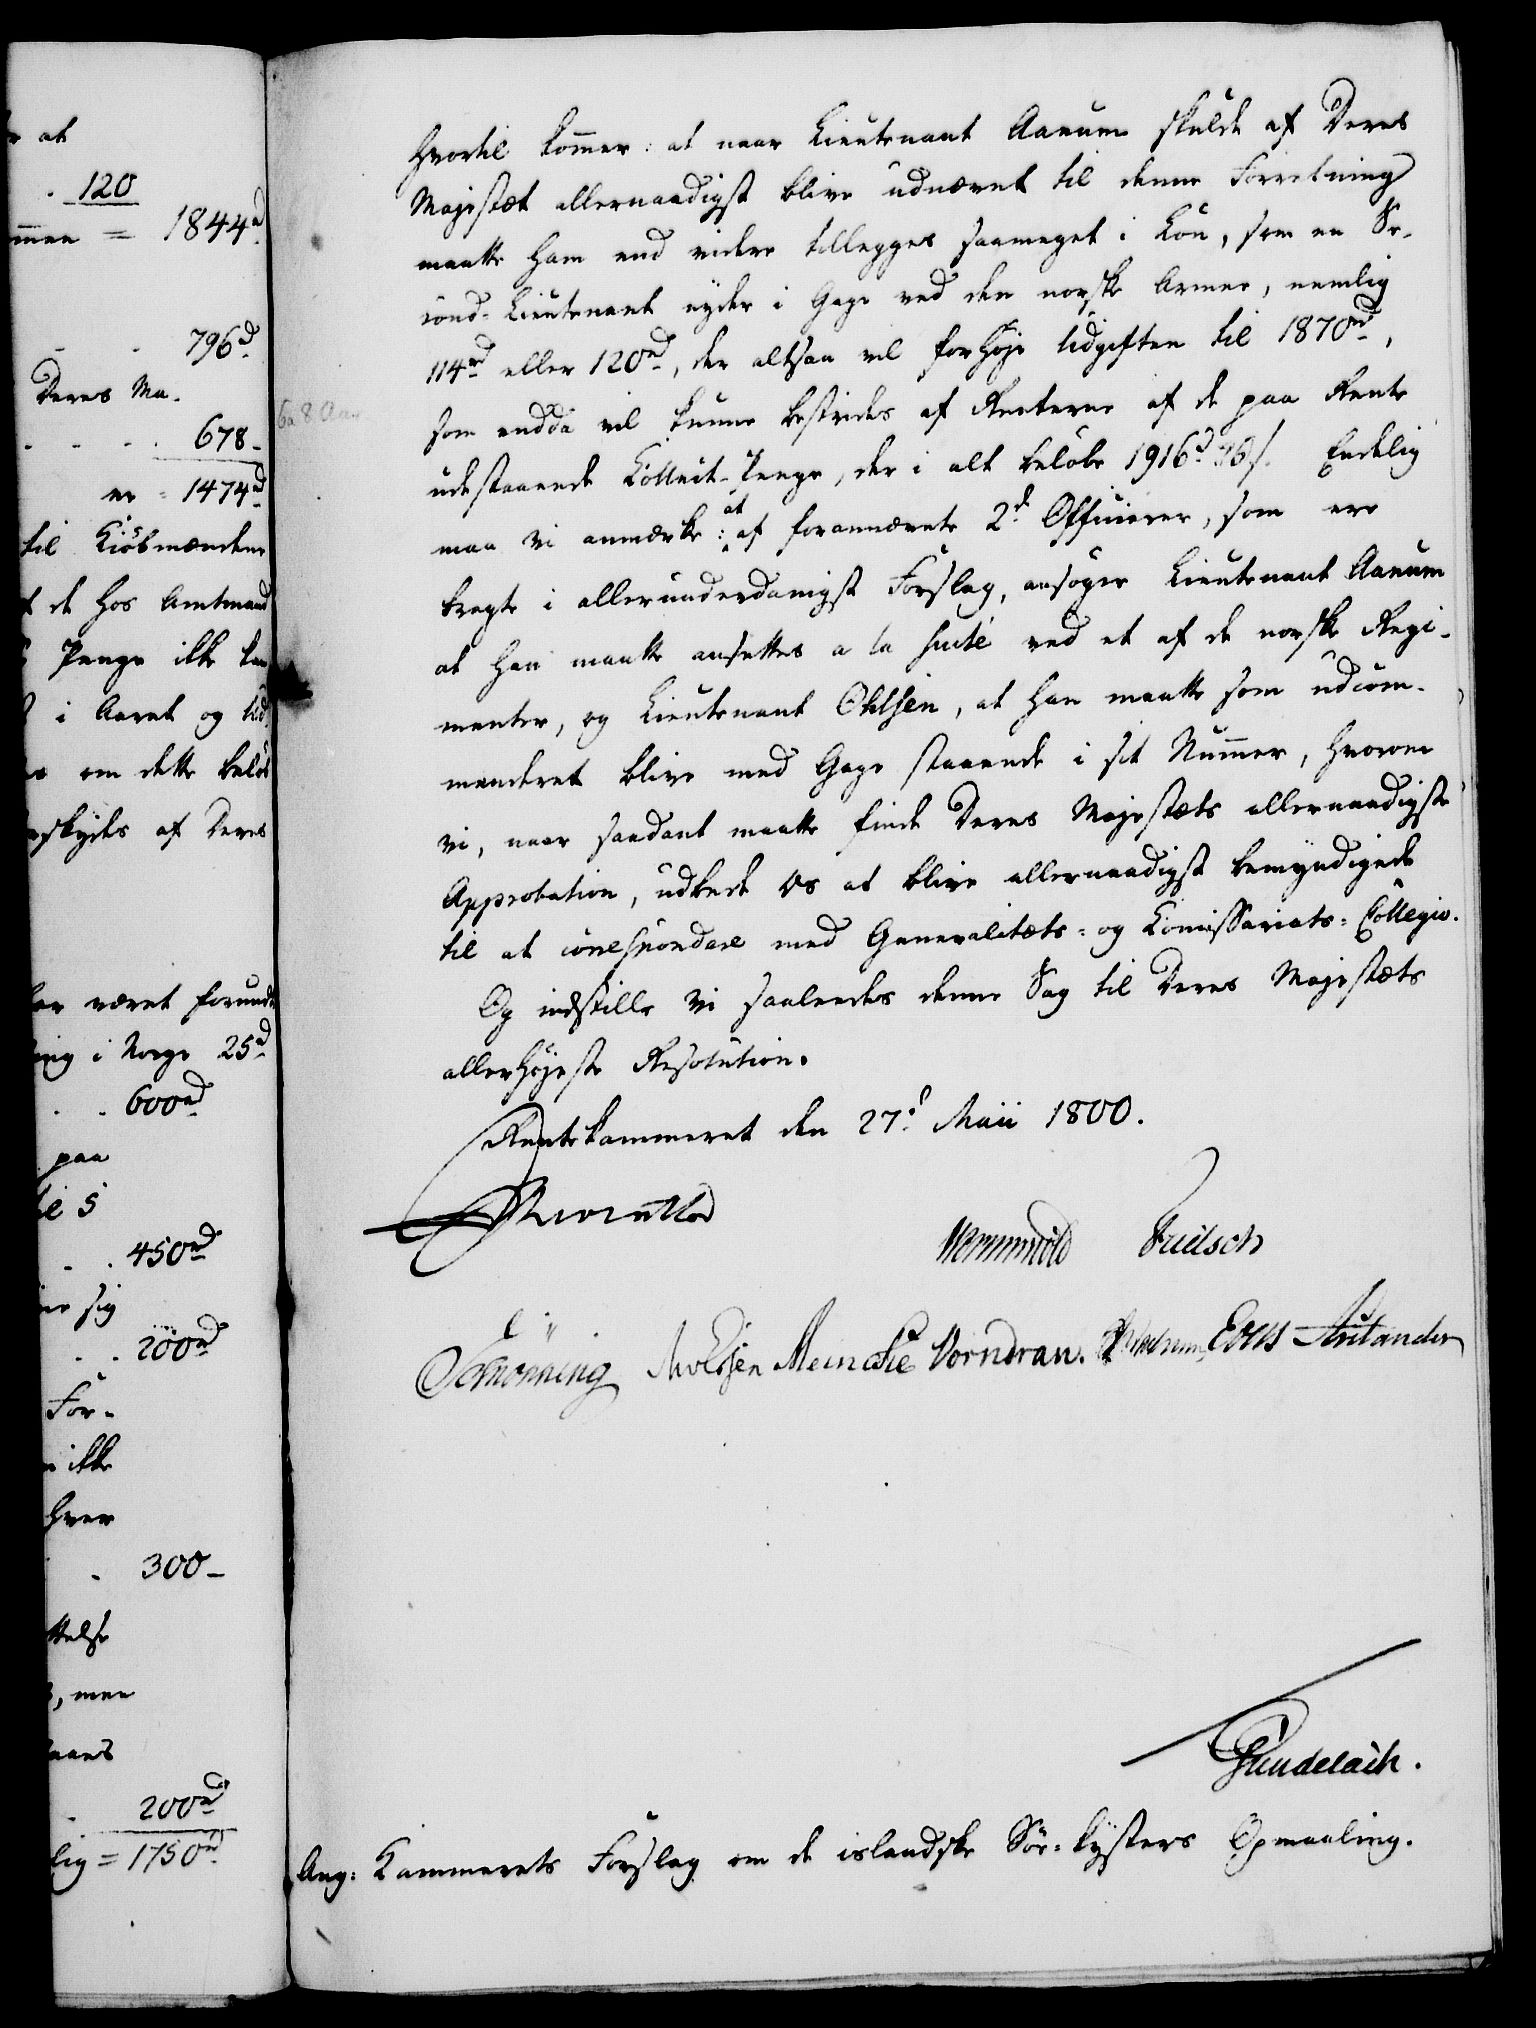 r at
120
mmen = 1844d
796d
Deres Ma-
678-
er = 1474d
til Kiöbmændene
de hos Amtmand
Penge ikke kan
i Aaret og Ud
om dette beløb
rskydes af Deres
har været forundt
ing i Norge 25d
600d
paa
til 5
450d
sig
200d
For-
ikke
hver
300-
ttelse
, men
aars
200d
lig = 1750d
hvortil kommer: at naar Lieutenant Aanum skulde af Deres
Majestæt allernaadigst blive udnævnt til denne Forretning
maatte ham end videre tillegges saameget i Løn, som en Se-
cond-Lieutenant nyder i Gage ved den norske Armee, nemlig
114rd eller 120rd, der altsaa vil forhøje Udgiften til 1870rd,
som endda vil kunne bestrides af Renterne af de paa Rente
udestaaende Collect-Penge, der i alt beløbe 1916d 36/. Endelig
maa vi anmærke: at af forannævnte 2de Officierer, som ere
bragte i allerunderdanigst Forslag, ansøger Lieutenant Aanum
at han maatte ansettes a la suite ved et af de norske Regi-
menter, og Lieutenant Ohlsen, at han maatte som udcom-
manderet blive med Gage staaende i sit Nummer, hvorom
vi, naar saadant maatte finde Deres Majestæts allernaadigste
Approbation, udbede os at blive allernaadigst bemyndigede
til at correspondere med Generalitets- og Commissariats-Collegio.
Og indstille vi saaledes denne Sag til Deres Majestæts
allerhøjeste Resolution.
Rentekammeret den 27d Maii 1800.
Reventlow
Wormskiold Fridsch
Schönning Meincke Vorndran. Evers Aristander
Gundelach.
Ang: Kammerets Forslag om de islandske Söe-kysters Opmaaling.